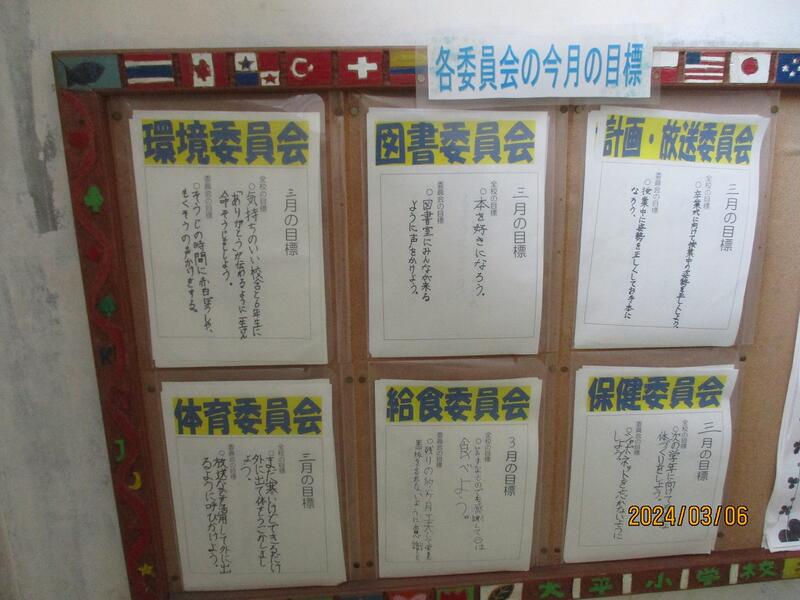 各委員会の今月の目標
環境委員会
三月の目標
全校の目標
○気持ちのいい校舎と6年生に
「ありがとう」が伝わるように一生けん
命そうじをしましょう。
委員会の目標
○そうじの時間に赤白ぼうしや、
もくそうの声かけをする。
図書委員会
三月の目標
全校の目標
○本を好きになろう。
委員会の目標
○図書室にみんなが来る
ように声をかけよう。
計画・放送委員会
三月の目標
全校の目標
○卒業式に向けて授業中の姿勢を正しくしよう。
委員会の目標
○授業中に姿勢を正しくしてお手本に
なろう。
体育委員会
三月の目標
全校の目標
○まだ寒いけどできるだけ
外に出て体をうごかしまし
ょう。
委員会の目標
○放送などを活用して外に出
るように呼びかけよう。
給食委員会
3月の目標
全校の目標
食べよう。
委員会の目標
保健委員会
三月の目標
全校の目標
○次の学年に向けて
体づくりをしよう。
委員会の目標
しよう。
大平小学校
2024/03/06